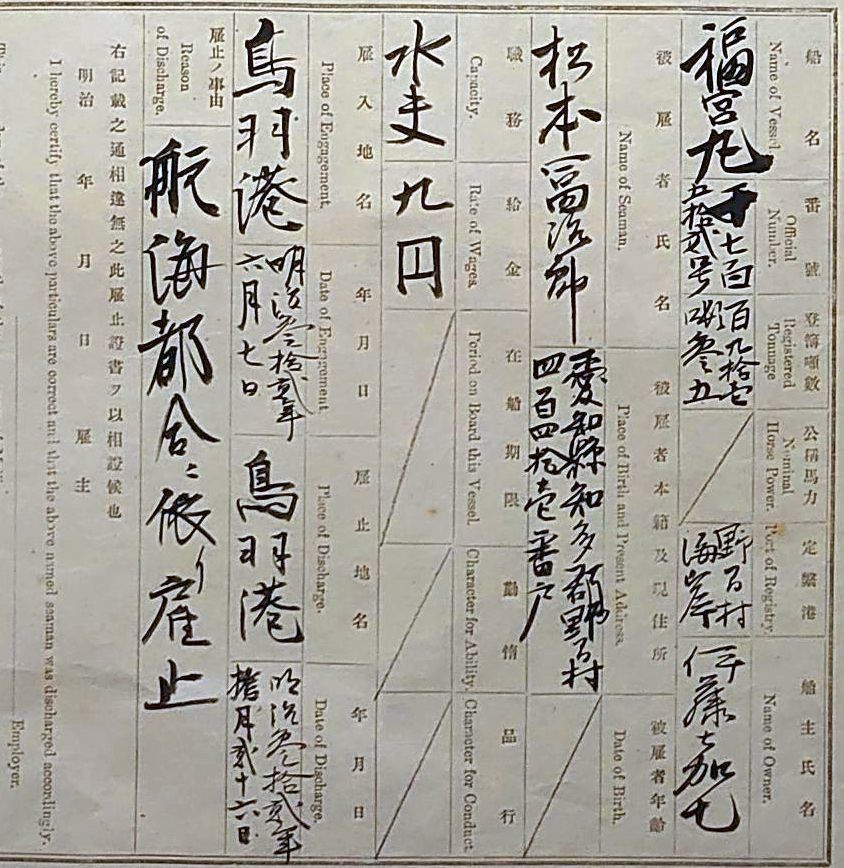 船名
Name of Vessel.
福宮丸
番號
Official Number.
千七百
五拾貳号
登簿噸數
Registered Tonnage
百九拾壱
噸零五
公稱馬力
Nominal Horse Power.
定繫港
Port of Registry.
野間村
海岸
船主氏名
Name of Owner.
被雇者氏名
Name of Seaman.
松本富治郎
被雇者本籍及現住所
Place of Birth and Present Address.
愛知縣知多郡野間村
四百四拾壱番戸
被雇者年齡
Date of Birth.
職務
Capacity.
水夫
給金
Rate of Wages.
九円
在船期限
Period on Board this Vessel.
勤惰
Character for Ability.
品行
Character for Conduct
雇入地名
Place of Engagement.
鳥羽港
年月日
Date of Engagement
明治参拾貳年
六月七日
雇止地名
Place of Discharge.
鳥羽港
年月日
Date of Discharge.
明治参拾貳年
拾月貳十六日
雇止ノ事由
Reason of Discharge.
航海都合ニ依リ雇止
右記載之通相違無之此雇止證書ヲ以相證候也
明治 年 月 日 雇主
I hereby certify that the above particulars are correct and that the above named seaman was discharged accordingly.
Employer.